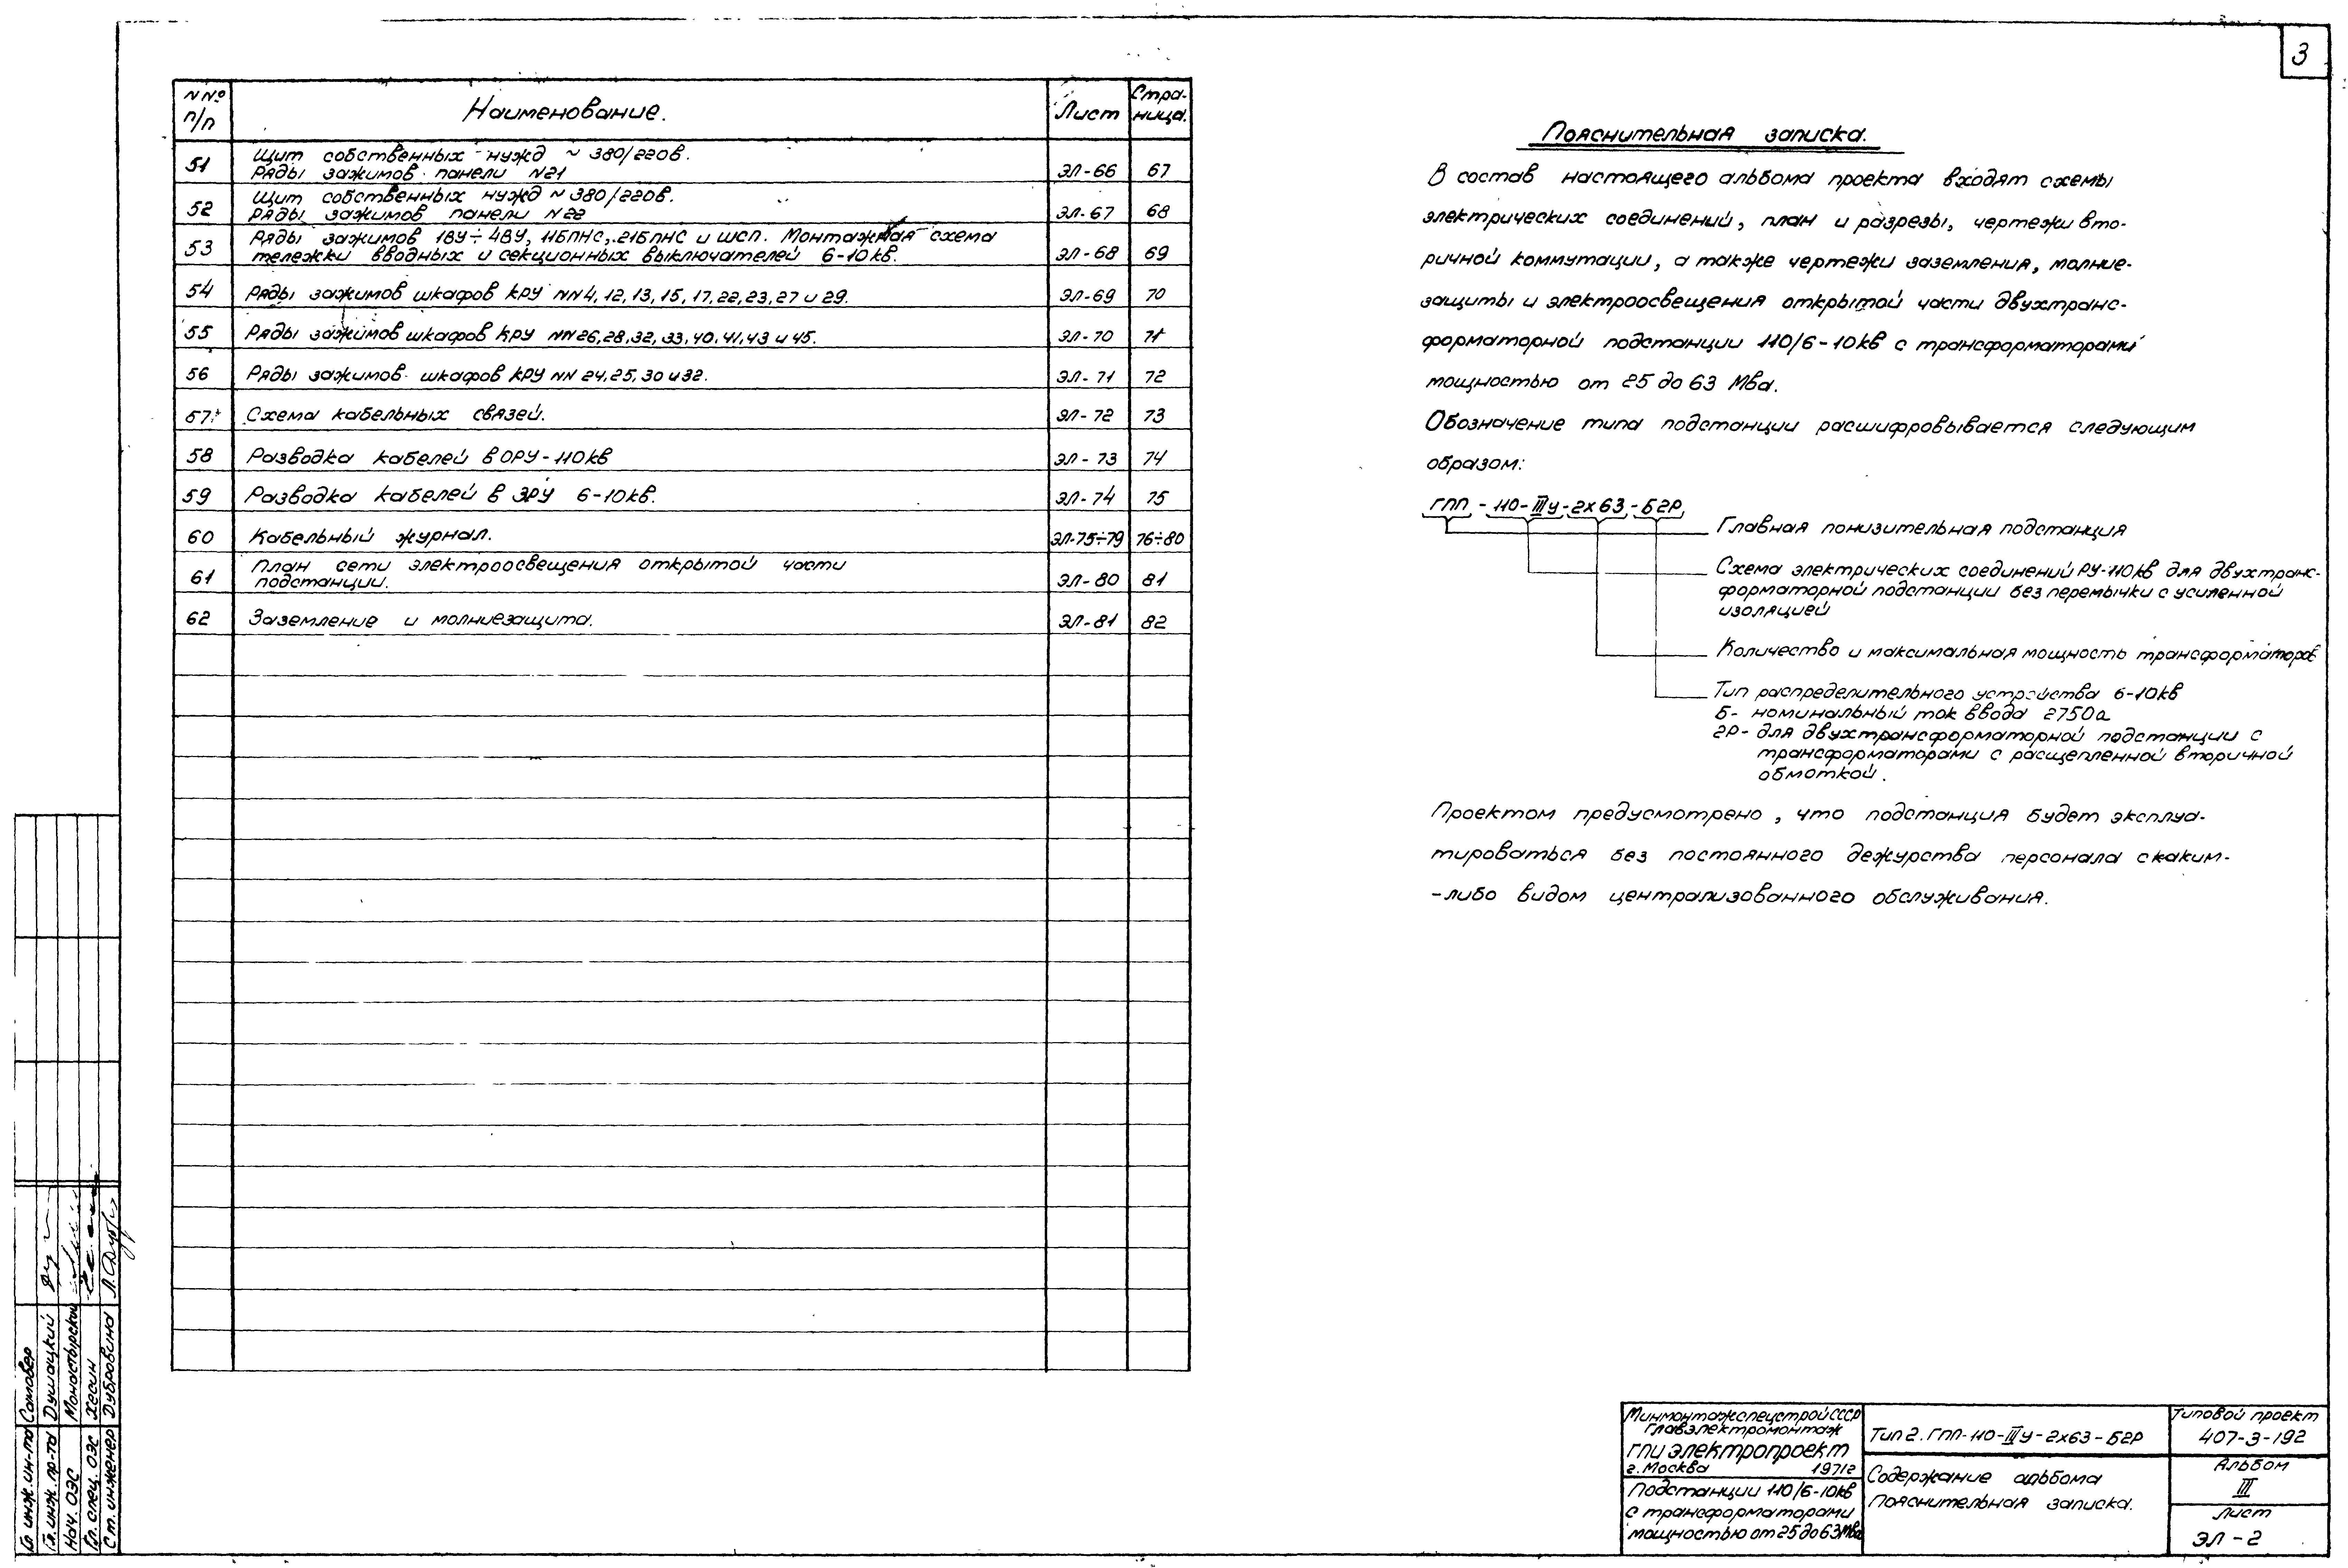 3
NNº п/п Наименование. Лист Стра-ница.
51 Щит собственных нужд ~ 380/220в.
Ряды зажимов панели N21 ЭЛ-66 67
52 Щит собственных нужд ~ 380/220в.
Ряды зажимов панели N22 ЭЛ-67 68
53 Ряды зажимов 1ВУ÷4ВУ, 11БПНС, 21БПНС и ШСП. Монтажная схема
тележки вводных и секционных выключателей 6-10кв. ЭЛ-68 69
54 Ряды зажимов шкафов КРУ NN4,12,13,15,17,22,23,27 и 29. ЭЛ-69 70
55 Ряды зажимов шкафов КРУ NN26,28,32,33,40,41,43 и 45. ЭЛ-70 71
56 Ряды зажимов шкафов КРУ NN 24,25,30 и 32. ЭЛ-71 72
57 Схема кабельных связей. ЭЛ-72 73
58 Разводка кабелей в ОРУ-110кв ЭЛ-73 74
59 Разводка кабелей в ЗРУ 6-10кв. ЭЛ-74 75
60 Кабельный журнал. ЭЛ-75÷79 76÷80
61 План сети электроосвещения открытой части
подстанции. ЭЛ-80 81
62 Заземление и молниезащита. ЭЛ-81 82
Пояснительная записка.
В состав настоящего альбома проекта входят схемы
электрических соединений, план и разрезы, чертежи вто-
ричной коммутации, а также чертежи заземления, молние-
защиты и электроосвещения открытой части двухтранс-
форматорной подстанции 110/6-10кв с трансформаторами
мощностью от 25 до 63 Мва.
Обозначение типа подстанции расшифровывается следующим
образом:
ГПП-110-IIIу-2х63-Б2Р
Главная понизительная подстанция
Схема электрических соединений РУ-110кв для двухтранс-
форматорной подстанции без перемычки с усиленной
изоляцией
Количество и максимальная мощность трансформаторов
Тип распределительного устройства 6-10кв
Б- номинальный ток ввода 2750а
2Р- для двухтрансформаторной подстанции с
трансформаторами с расщепленной вторичной
обмоткой.
Проектом предусмотрено, что подстанция будет эксплуа-
тироваться без постоянного дежурства персонала с каким-
-либо видом централизованного обслуживания.
Гл инж. ин-та Самовер
Гл. инж. пр-та Душацкий
Нач. ОЭС Монастырский
Гл. спец. ОЭС Хесин
Ст. инженер Дубровина
Минмонтажспецстрой СССР
Главэлектромонтаж
ГПИ электропроект
г. Москва 1971г
Подстанции 110/6-10кв
с трансформаторами
мощностью от 25 до 63 Мва
Тип 2. ГПП-110-IIIу-2х63-Б2Р
Содержание альбома
Пояснительная записка.
Типовой проект
407-3-192
Альбом
III
Лист
ЭЛ-2